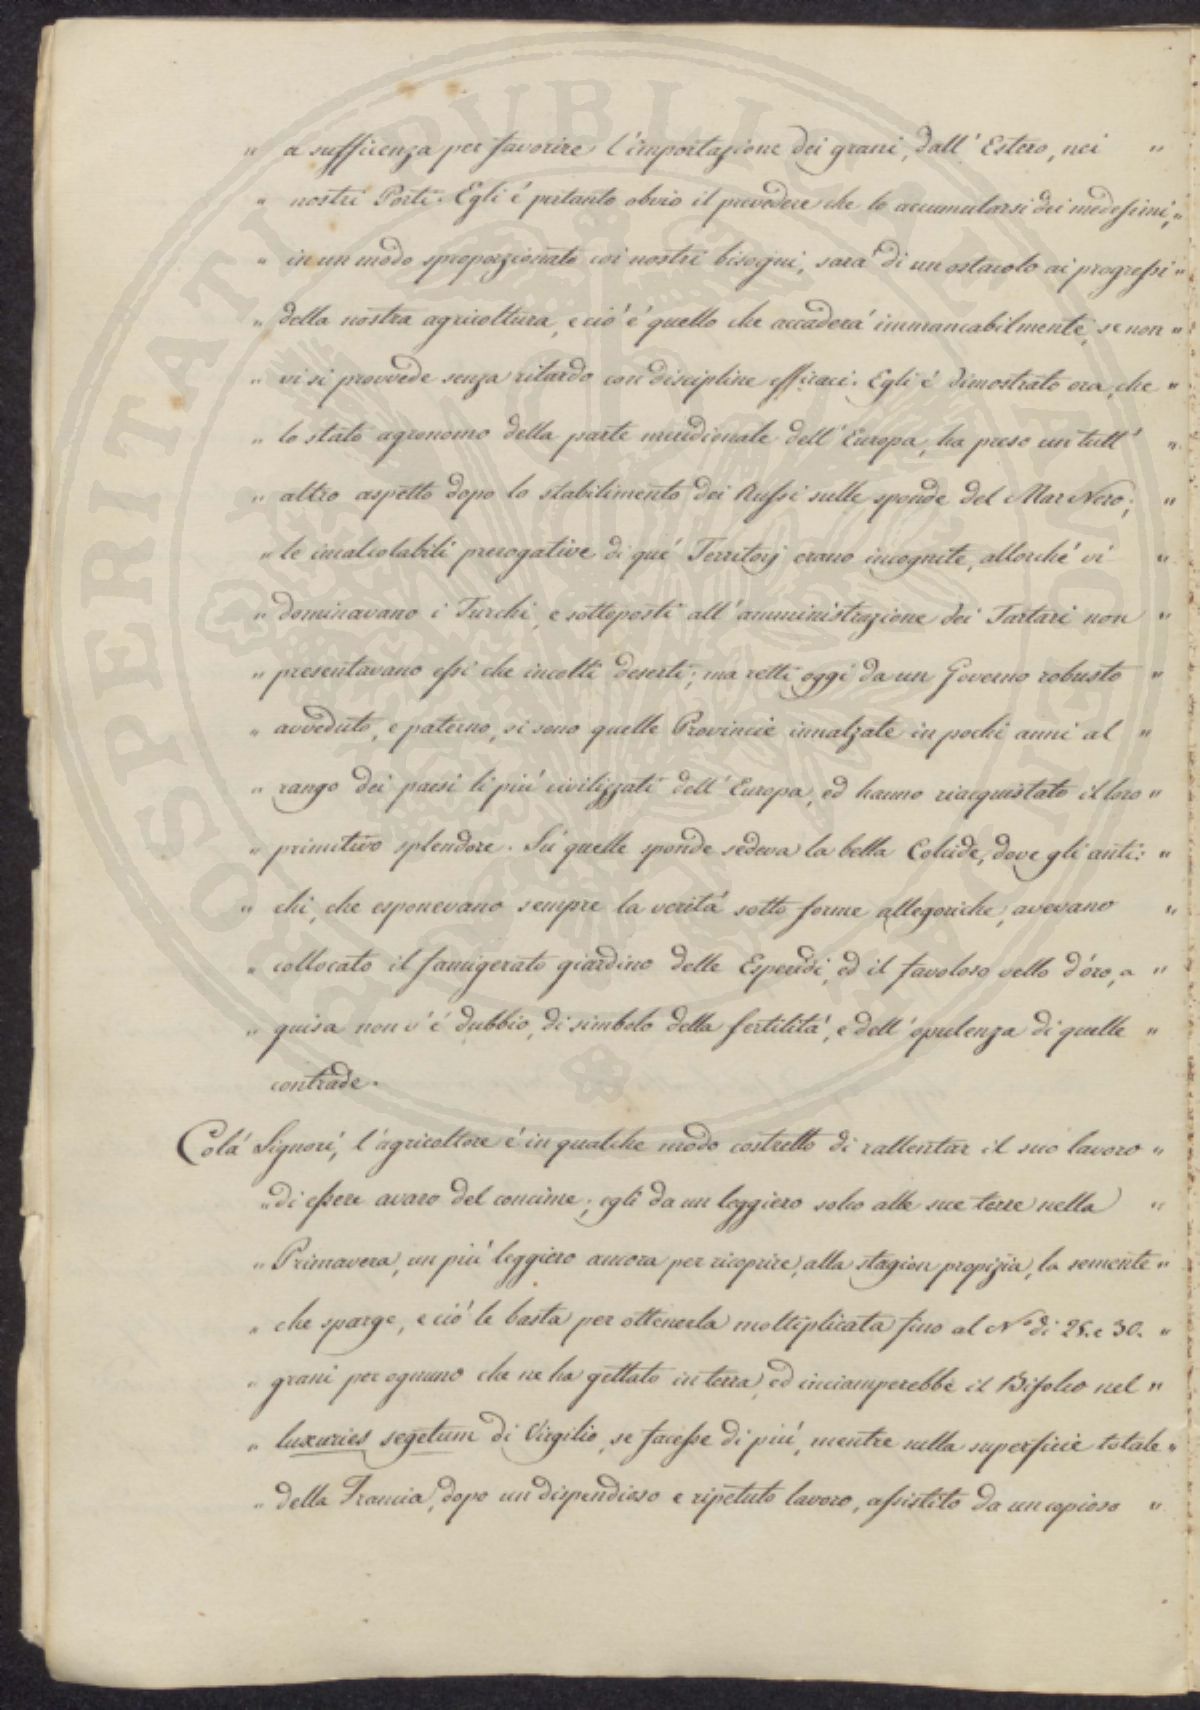 " a sufficienza per favorire l'importazione dei grani, dall'Estero, nei "
" nostri Porti. Egli é pertanto obvio il prevedere che lo accumularsi dei medesimi, "
" in un modo sproporzionato coi nostri bisogni, sara' di un ostacolo ai progressi "
" della nostra agricoltura, e ció é quello che accaderá immancabilmente, se non "
" vi si provvede senza ritardo con discipline efficaci. Egli é dimostrato ora, che "
" lo stato agronomo della parte meridionale dell'Europa, ha preso un tutt' "
" altro aspetto dopo lo stabilimento dei Russi sulle sponde del Mar Nero; "
" le incalcolabili prerogative di qué Territorj erano incognite, allorché vi "
" dominavano i Turchi, e sottoposti all'amministrazione dei Tartari non "
" presentavano essi che incolti deserti; ma retti oggi da un Governo robusto "
" avveduto, e paterno, si sono quelle Provincie innalzate in pochi anni al "
" rango dei paesi li piú civilizzati dell'Europa, ed hanno riacquistato il loro "
" primitivo splendore. Sú quelle sponde sedeva la bella Colcide, dove gli anti: "
" chi, che esponevano sempre la veritá sotto forme allegoriche, avevano "
" collocato il famigerato giardino delle Esperidi, ed il favoloso vello d'oro, a "
" guisa non v'é dubbio, di simbolo della fertilitá, e dell'opulenza di quelle "
contrade.
Colá Signori, l'agricoltore é in qualche modo costretto di rallentar il suo lavoro "
" di essere avaro del concime; egli da un leggiero solco alle sue terre nella "
" Primavera, un piú leggiero ancora per ricoprire, alla stagion propizia, la semente "
" che sparge, e ció le basta per ottenerla moltiplicata fino al N.º di 25. e 30. "
" grani per ognuno che ne ha gettato in terra, ed inciamperebbe il Bifolco nel "
" luxuries segetum di Virgilio, se facesse di piú, mentre nella superficie totale "
" della Francia, dopo un dispendioso e ripetuto lavoro, assistito da un copioso "
PROSPERITATI PVBLICAE AVGENDAE